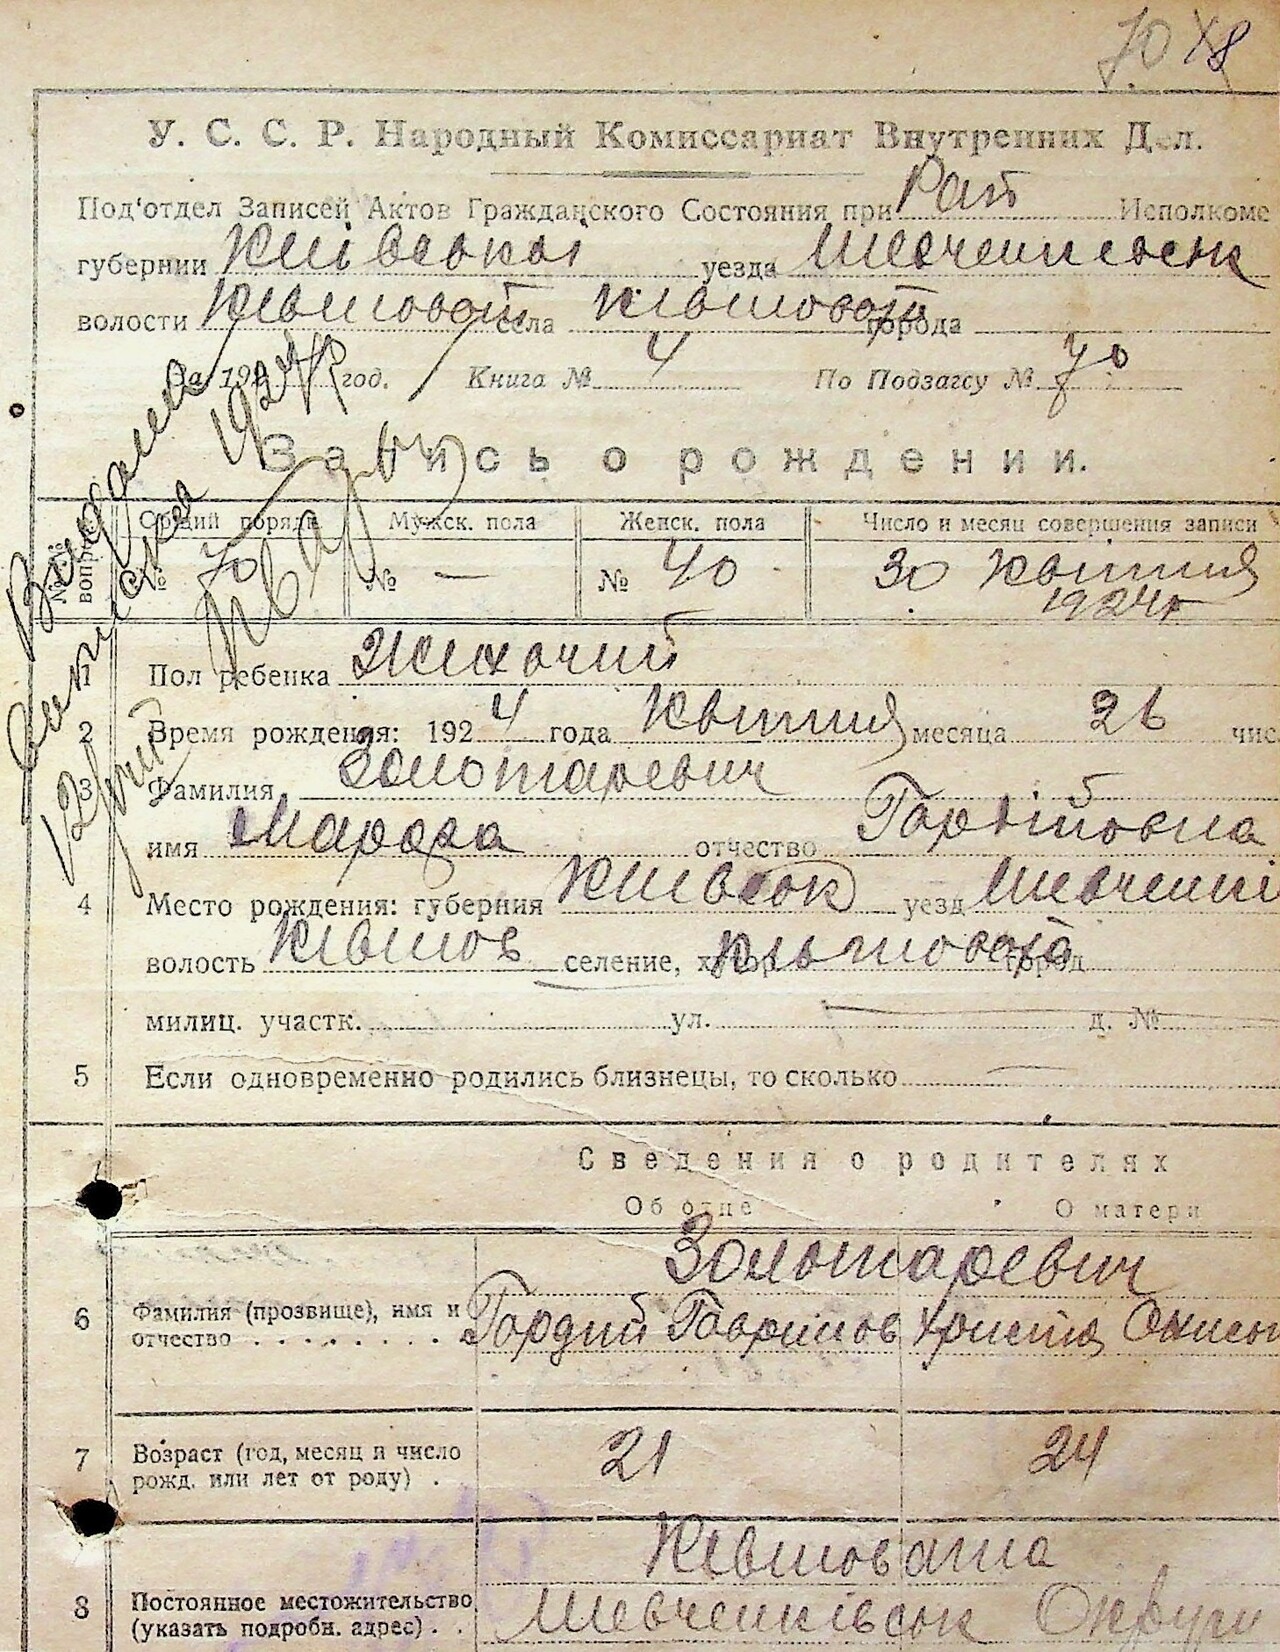 70 78
У. С. С. Р. Народный Комиссариат Внутренних Дел.
Под'отдел Записей Актов Гражданского Состояния при Рай Исполкоме
губернии Київської уезда Шевченківськ
волости Ківшоват села Ківшоват города
За 1924 год. Книга № 4 По Подзагсу № 70
Запись о рождении.
№№ вопрос. Общий порядк. Мужск. пола Женск. пола Число и месяц совершения записи
№ 70 № — № 40 30 Квітня
1924 г
1 Пол ребенка Жіночий
2 Время рождения: 1924 года Квітня месяца 26 чис
3 Фамилия Золотаревич
имя отчество Гордіївна
4 Место рождения: губерния Київськ уезд Шевченкі
волость Ківшов селение, хутор Ківшовата город
милиц. участк. ул. д. №
5 Если одновременно родились близнецы, то сколько —
Сведения о родителях
Об отце О матери
Золотаревич
6 Фамилия (прозвище), имя и Гордий Гаврилов Христя
отчество . . . . . . . .
7 Возраст (год, месяц и число 21 24
рожд. или лет от роду) .
Ківшовата
8 Постоянное местожительство Шевченківськ Округи
(указать подробн. адрес) . .
Видана
виписка 1924 р
12/